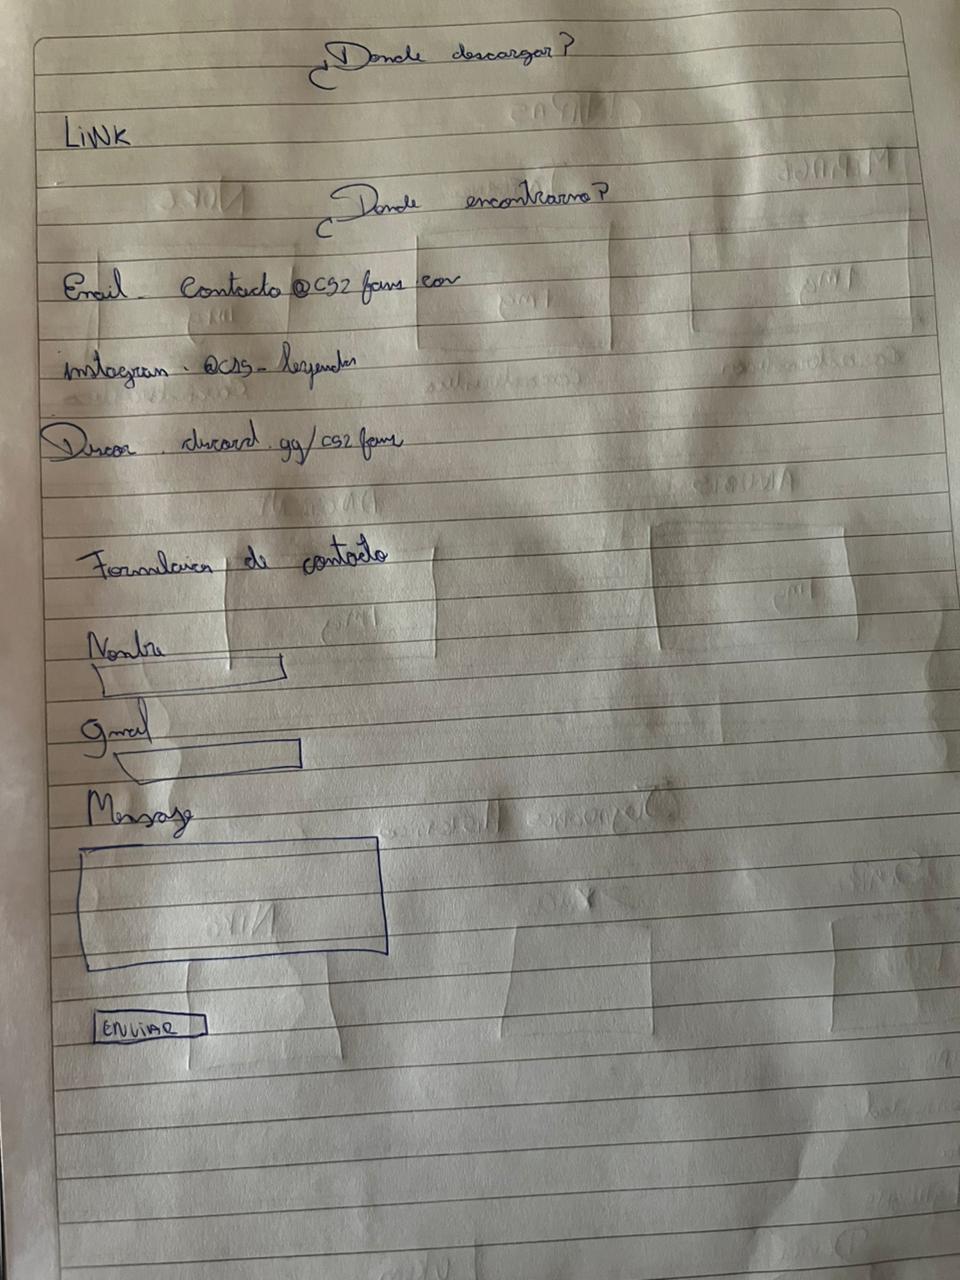 ¿Donde descargar?
LiNK
¿Donde encontrarno?
Email - Contacto @cs2 fans com
instagram . @CSG_leyendas
Discor . discord.gg/cs2 fans
Formulario de contacto
Nombre
gmail
Mensage
ENViAR